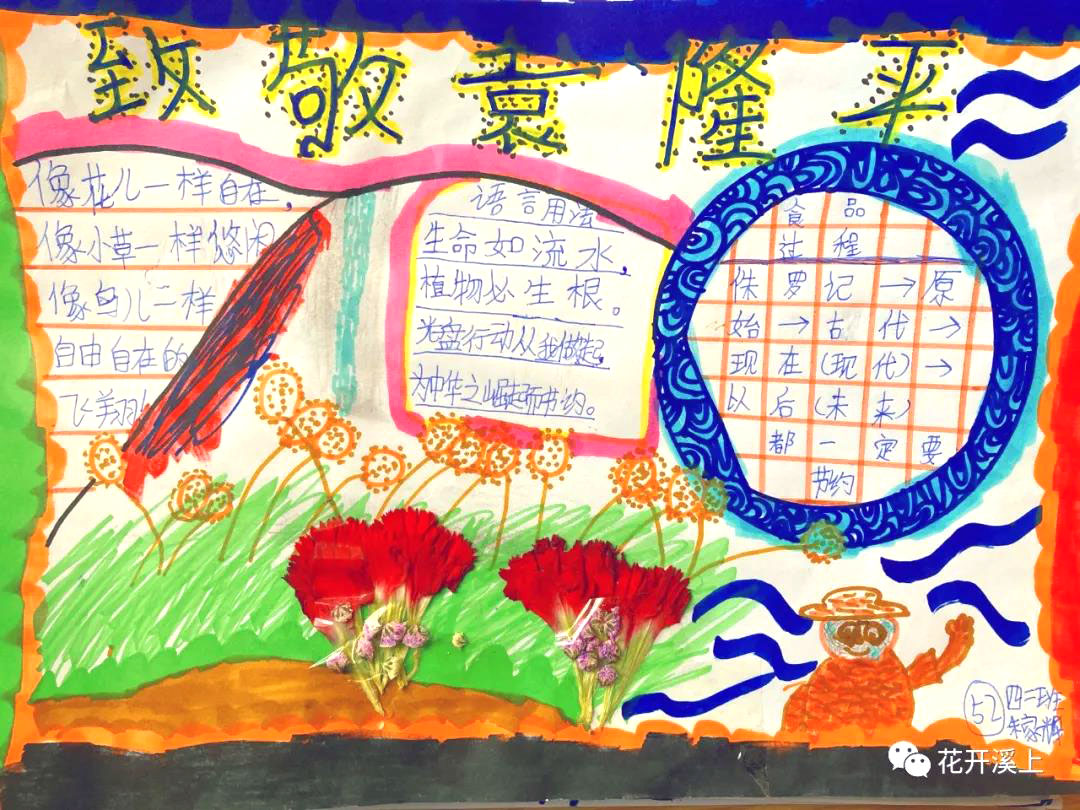 致敬袁隆平
像花儿一样自在，
像小草一样悠闲
像鸟儿二样
自由自在的
飞翔
语言用法
生命如流水，
植物必生根。
光盘行动从我做起，
为中华之崛起而节约。
食品
过程
侏罗记→原
始→古代→
现在(现代)→
以后(未来)
都一定要
节约
52
四二班
花开溪上